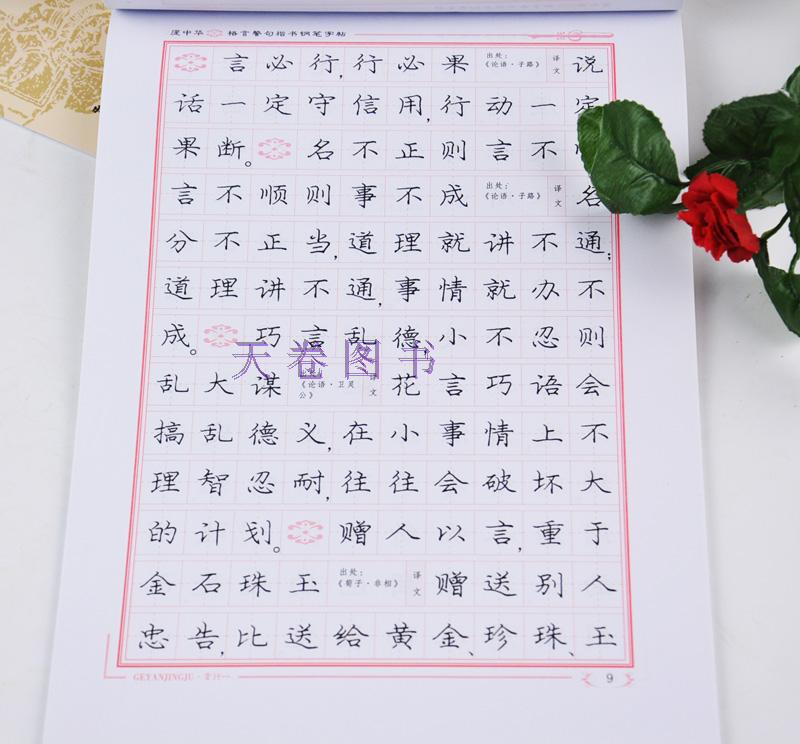 庞中华 格言警句楷书钢笔字帖
言必行,行必果 出处:《论语·子路》 译文 说
话一定守信用,行动一定
果断。 名不正则言不
言不顺则事不成 出处:《论语·子路》 译文 名
分不正当,道理就讲不通;
道理讲不通,事情就办不
成。 巧言乱德,小不忍则
乱大谋 《论语·卫灵公》 译文 花言巧语会
搞乱德义,在小事情上不
理智忍耐,往往会破坏大
的计划。 赠人以言,重于
金石珠玉 出处:《荀子·非相》 译文 赠送别人
忠告,比送给黄金、珍珠、玉
GEYANJINGJU·言行一
9
天卷图书